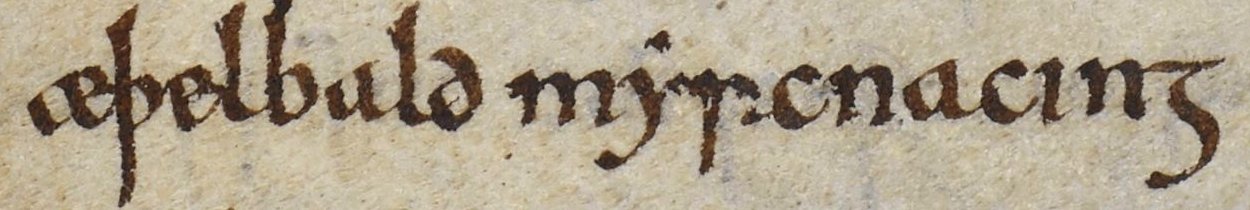 æþelbald myrcna cing